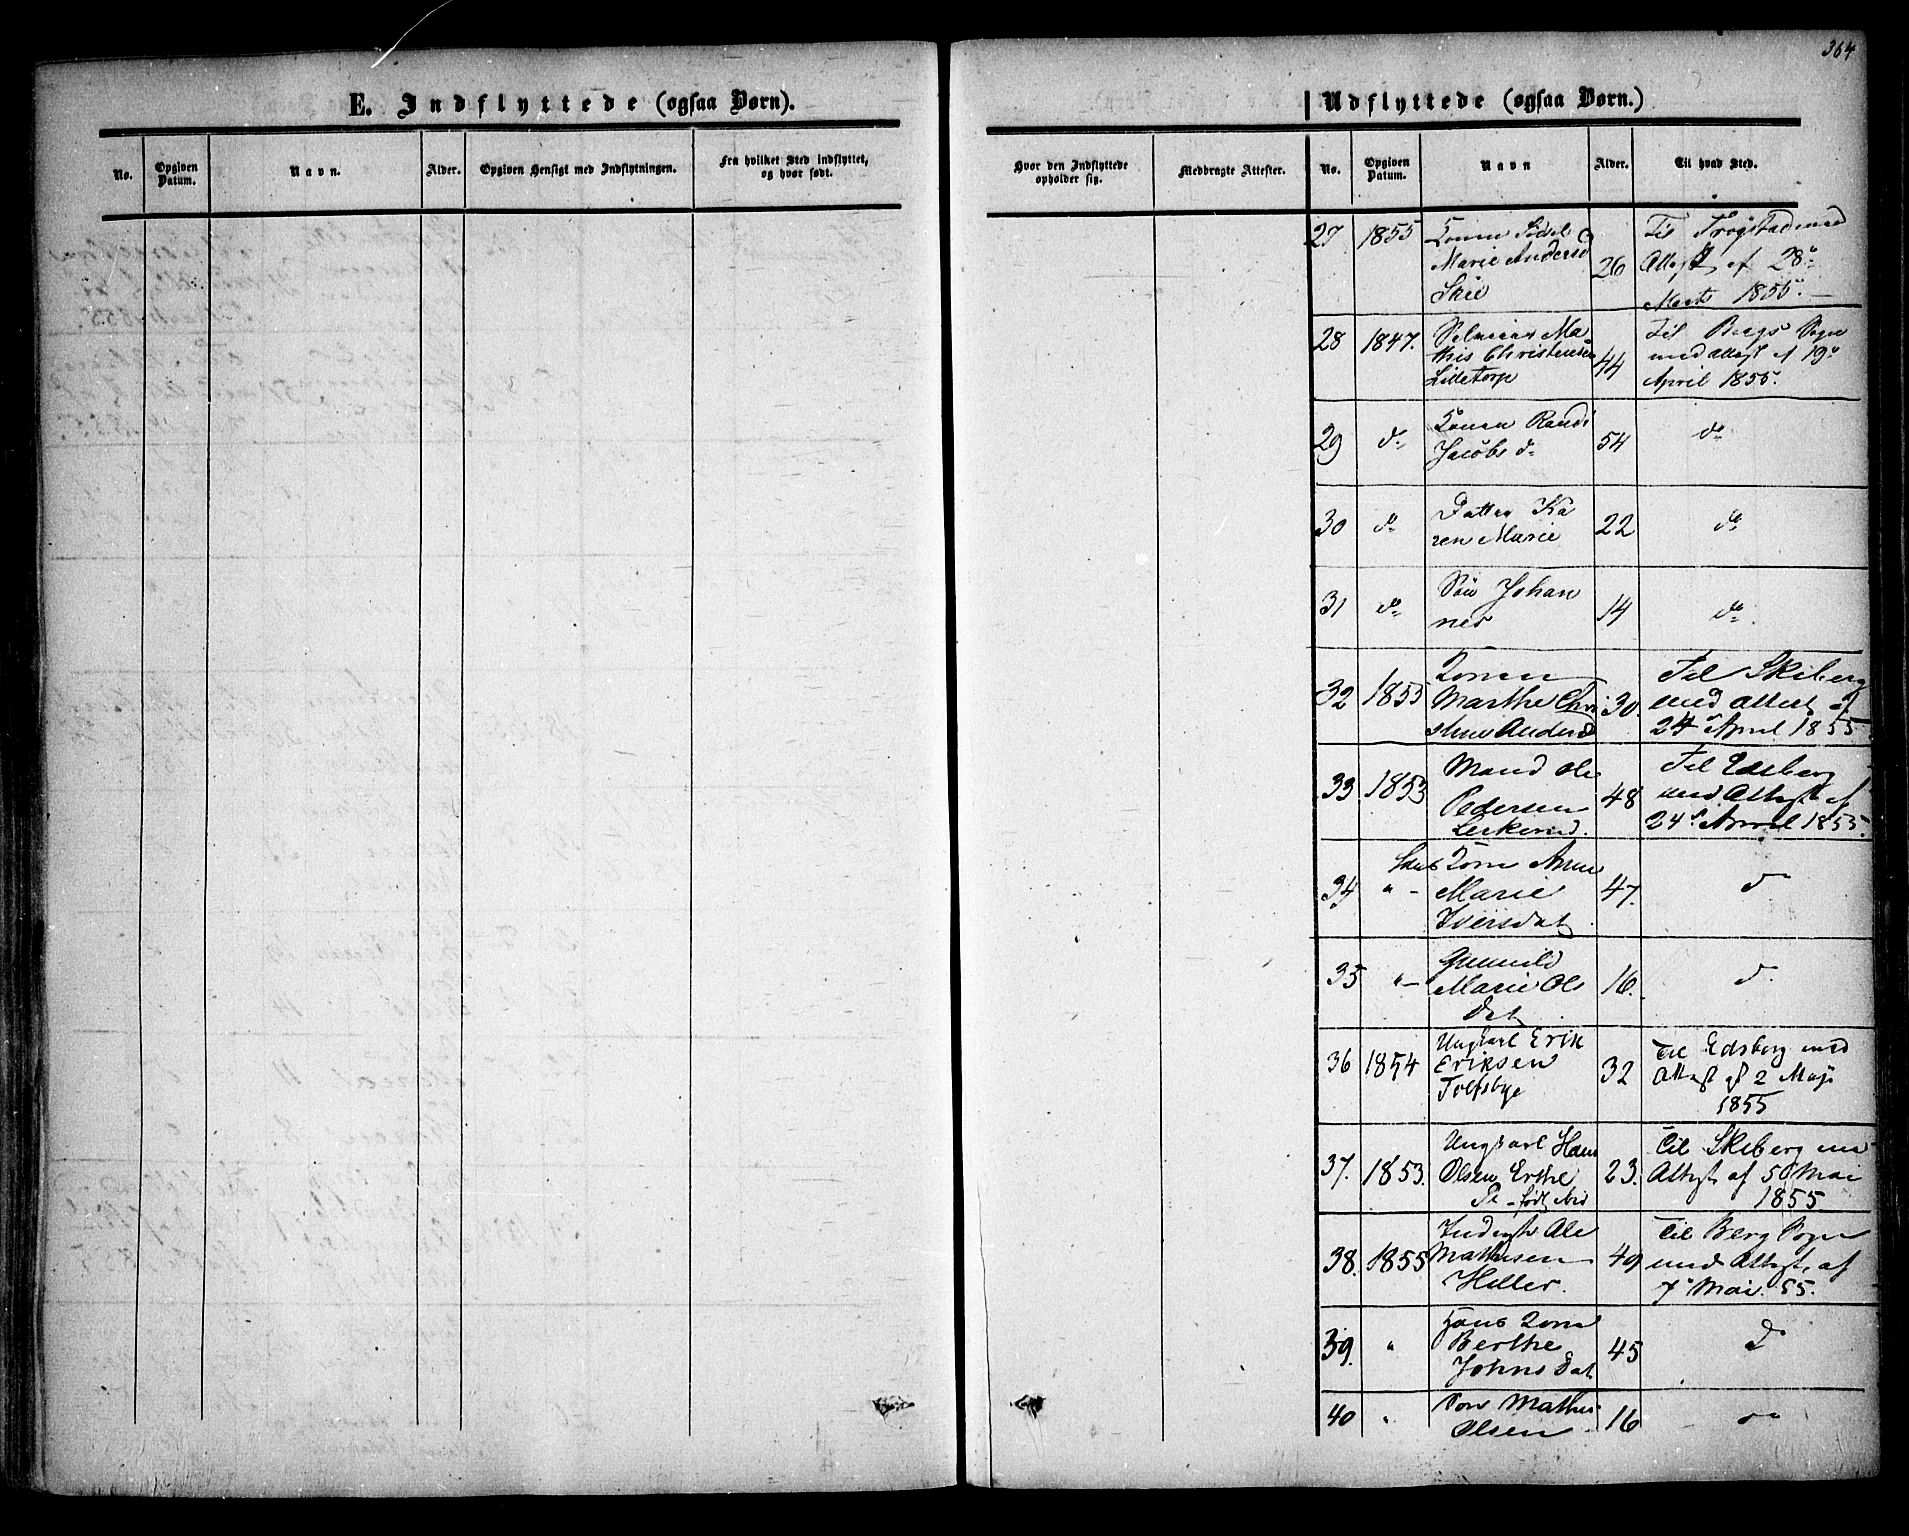 364
E. Indflyttede (ogsaa Børn).
Udflyttede (ogsaa Børn.)
No.
Opgiven Datum.
Navn.
Alder.
Opgiven Hensigt med Indflytningen.
Fra hvilket Sted indflyttet, og hvor født.
Hvor den Indflyttede opholder sig.
Medbragte Attester.
No.
Opgiven Datum.
Navn
Alder.
Til hvad Sted.
27 1855 Konen Sidsel Marie Andersd Skie 26 Til Trøgstad med Attest af 28de Marts 1855.
28 1847. Selveier Mathis Christensen Lilletorp 44 Til Bergs Sogn med Attest af 19de April 1855.
29 do Konen Randi Jacobsd 54 do
30 do Datter Karen Marie 22 do
31 do Søn Johannes 14 do
32 1855 Konen Marthe Christine Andersd 30. Til Skiberg med Attest af 24de April 1855
33 1853 Mand Ole Pedersen 48 Til Edsberg med Attest af 24de April 1855.
34 " - Hans Kone Anne Marie Iversdat 47. do
35 " - Gunnild Marie Olsdat 16. do
36 1854 Ungkarl Erik Eriksen Tolfsbye 32 Til Edsberg med Attest af 2 Maji 1855
37. 1853. Ungkarl Hans Olsen Erthe 23. Til Skiberg med Attest af 5 Mai 1855
38. 1855 Inderst Ole Mathisen Heller. 49 Til Berg Sogn med Attest af 7de Mai 55.
39. " Hans Kone Berthe Johnsdat 45 do
40 " Søn Mathis Olsen 16 do